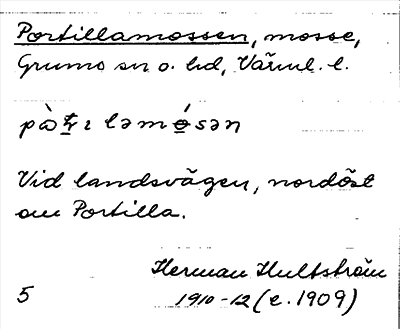 Portillamossen, mosse,
Grums sn o. hd, Värml. l.
pὼt̠ɪ ləmó̠sən
Vid landsvägen, nordöst
om Portilla.
Herman Hultström
5 1910-12 (e. 1909)